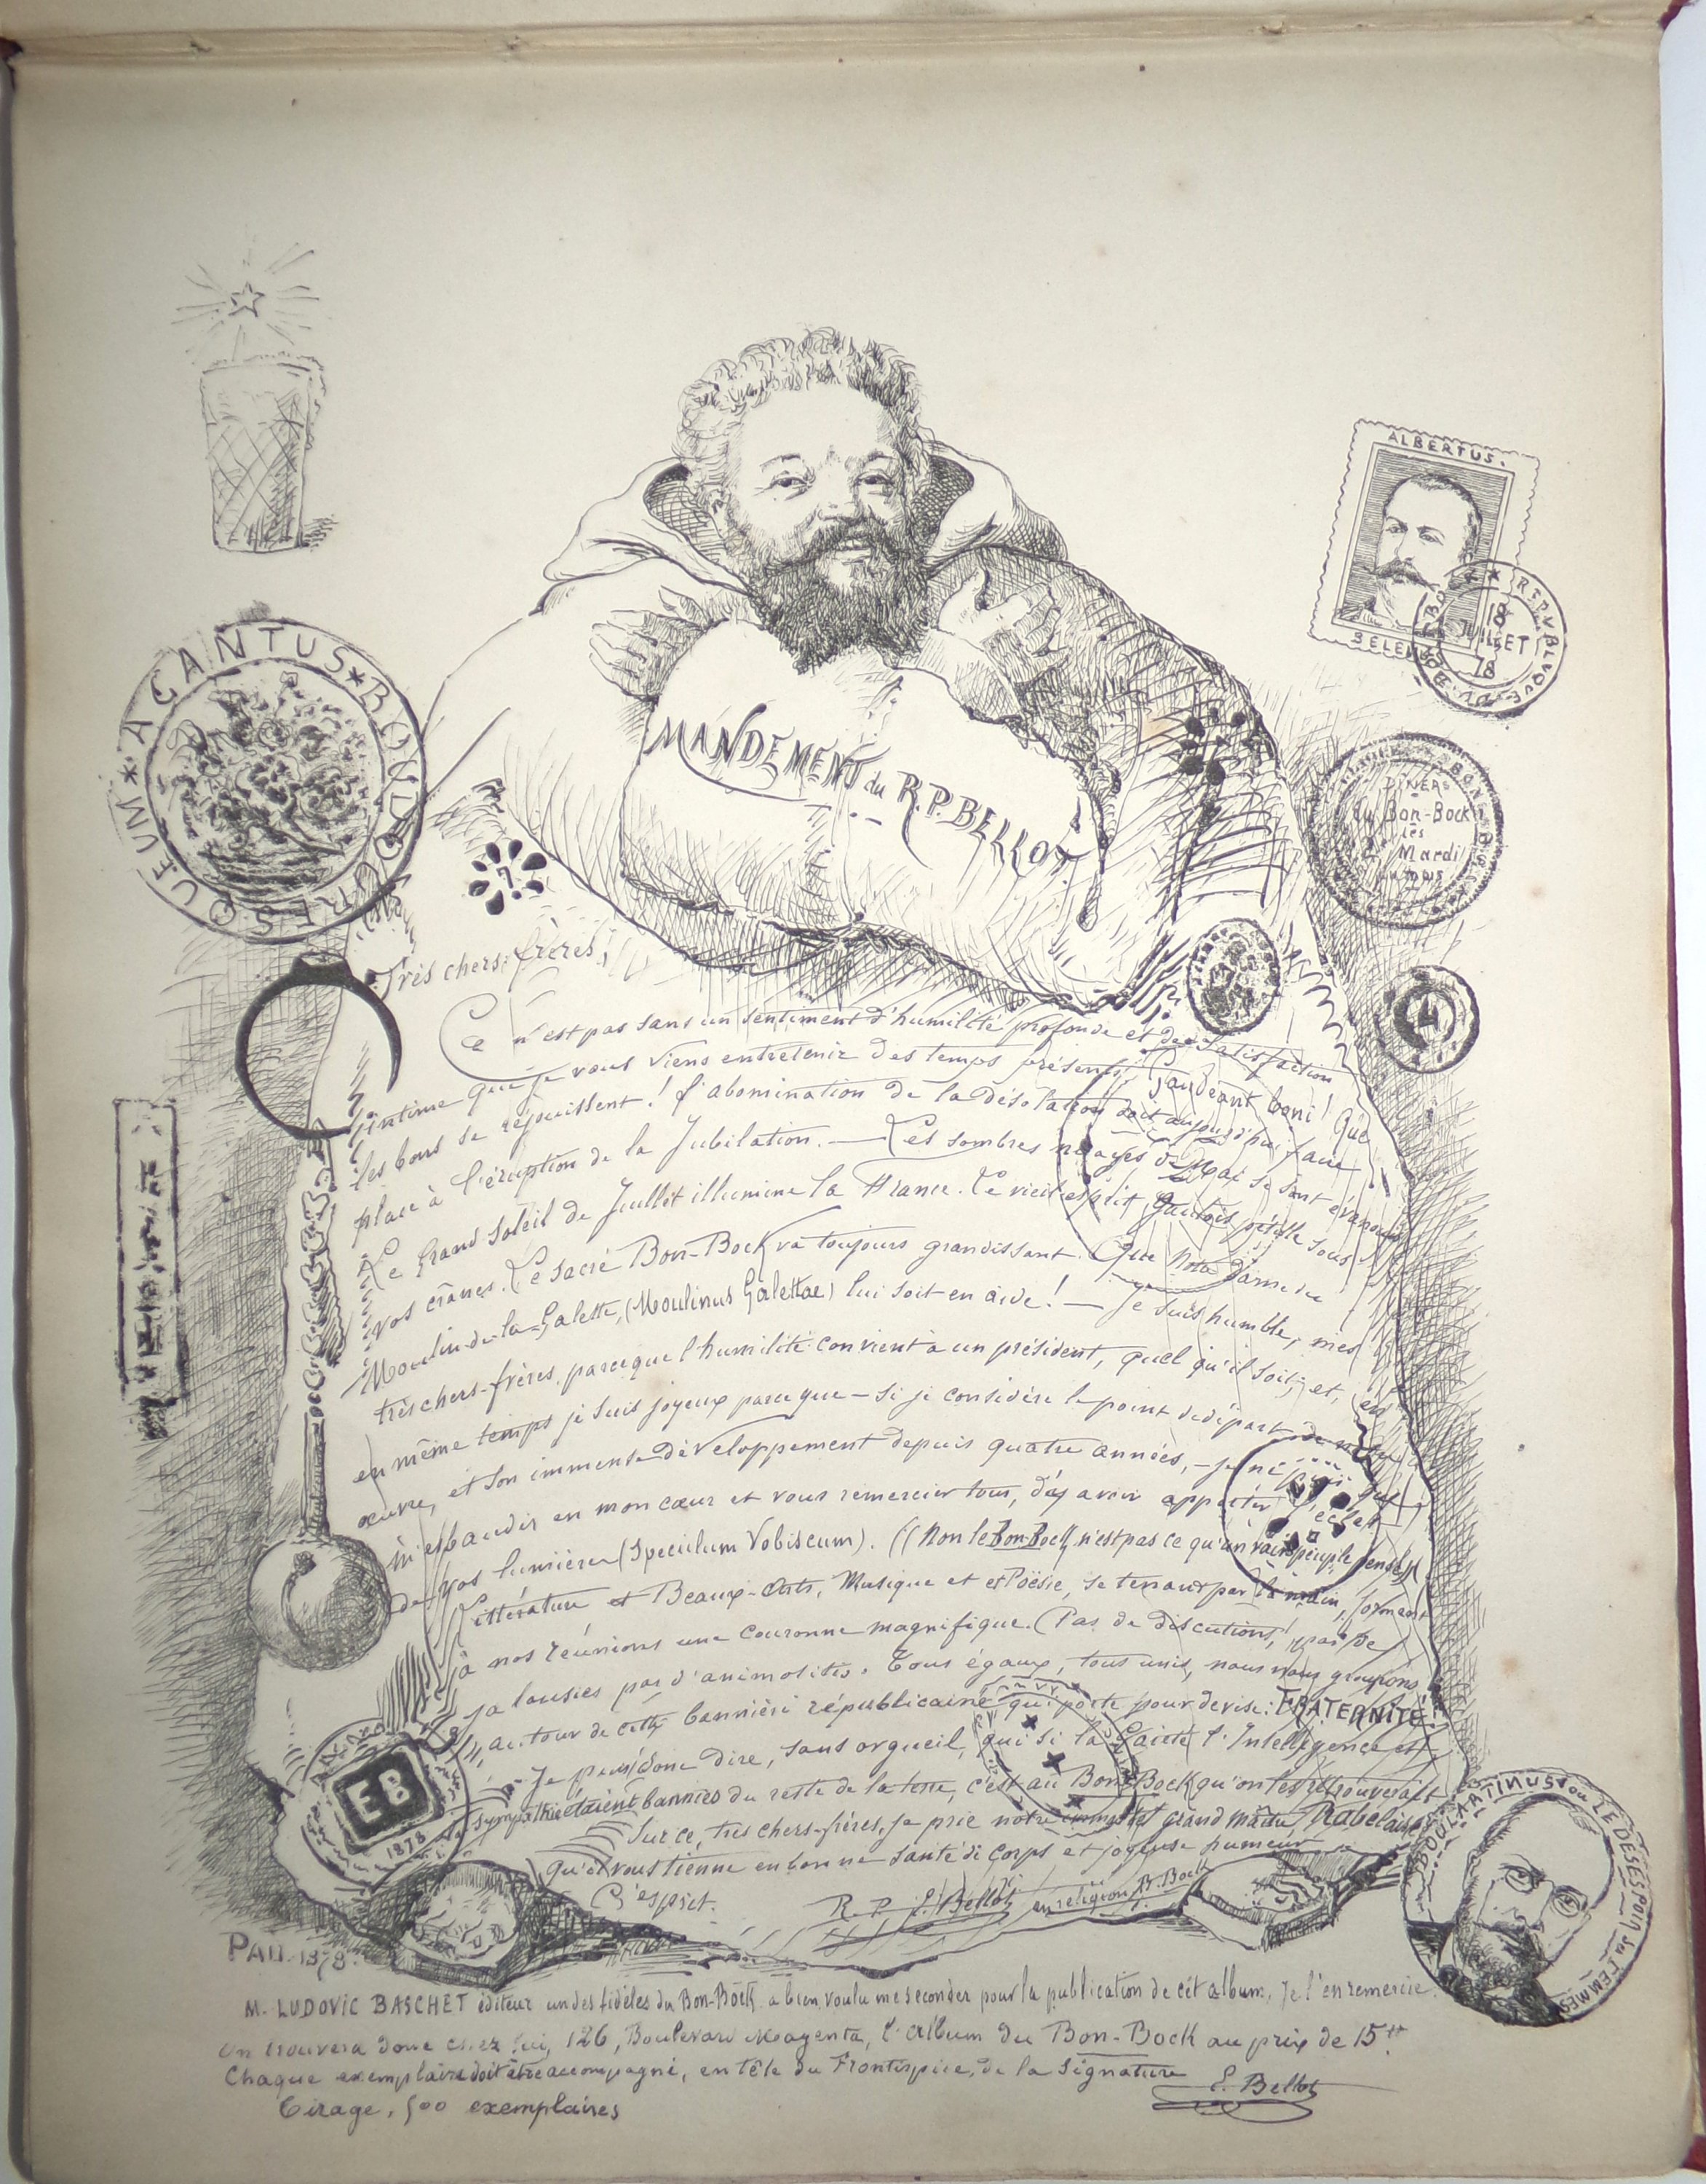 ALBERTUS.
★ ★ REPUBLIQUE DU BON BO
18
JUILLET
78
ACANTUS ★ BOUDOURESQUEUM ★
MANDEMENT du R.P. BELLOT
DINERS
du Bon-Bock
les
Mardi
du mois
7
Très chers-frères,
Ce n'est pas sans un sentiment d'humilité profonde et de satisfaction
intime que je vous viens entretenir des temps présents. Gaudeant boni! Que
les bons se réjouissent! l'abomination de la désolation doit aujourd'hui faire
place à l'éruption de la Jubilation. — Les sombres nuages de Mai se sont évanouis
Le Grand Soleil de Juillet illumine la France. Le vieil esprit gaulois pétille sous
vos crânes. Le sacré Bon-Bock va toujours grandissant. Que Notre Dame du
Moulin-de-la-Galette, (Moulinus Galettae) lui soit en aide! — Je suis humble, mes
très chers-frères, parce que l'humilité convient à un président, quel qu'il soit, et,
en même temps je suis joyeux parce que — si je considère le point de départ de notre
œuvre, et son immense développement depuis quatre années, — je ne puis que
m'esbaudir en mon cœur et vous remercier tous, d'y avoir apporter l'éclat
de vos lumières (Speculum Vobiscum). ((Non le Bon-Bock n'est pas ce qu'un vain peuple pense))
Littérature et Beaux-Arts, Musique et et Poësie, se tenant par la main, forment
à nos réunions une couronne magnifique. (Pas de discutions! pas de
jalousies pas d'animosités. Tous égaux, tous unis, nous nous groupons
autour de cette bannière républicaine qui porte pour devise: FRATERNITÉ!
Je puis donc dire, sans orgueil, qui si la Gaieté l'Intelligence et
sympathie étaient bannies du reste de la terre, c'est au Bon-Bock qu'on les retrouverait
Sur ce, très chers-frères, je prie notre grand maître, Rabelais
qu'il vous tienne en bonne santé de corps et joyeuse humeur
d'esprit.
R. P. E. Bellot en religion B. Bock
EB
1878
BOULARTINUS ou LE DESESPOIR des FEMMES
PAU. 1878.
M. LUDOVIC BASCHET éditeur un des fidèles du Bon-Bock a bien voulu me seconder pour la publication de cet album, je l'en remercie.
on trouvera donc chez lui, 126, Boulevard Magenta, l'album du Bon-Bock au prix de 15 fr.
Chaque exemplaire doit être accompagné, en tête du Frontispice, de la signature E. Bellot
Tirage, 500 exemplaires